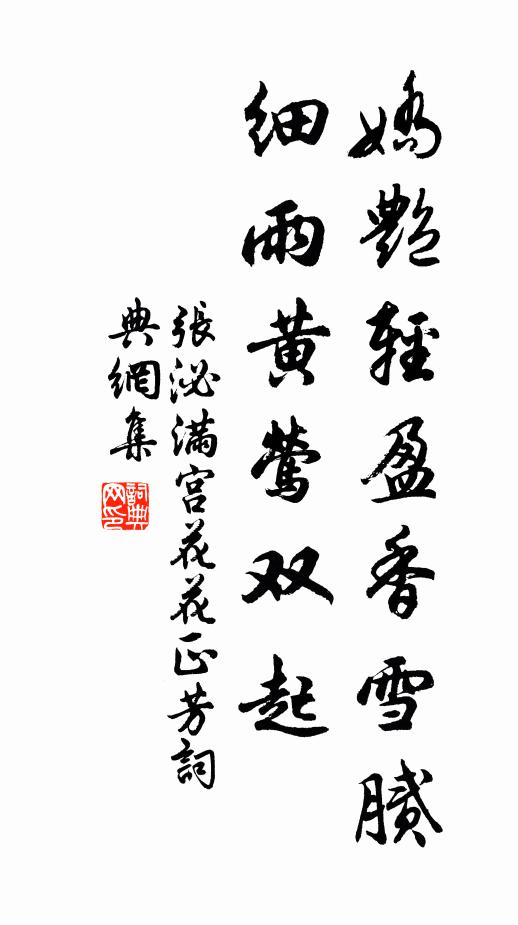 嬌艷輕盈香雪膩
細雨黄鶯双起
張泌満宮花花正芳詞
典網集
詞典网印